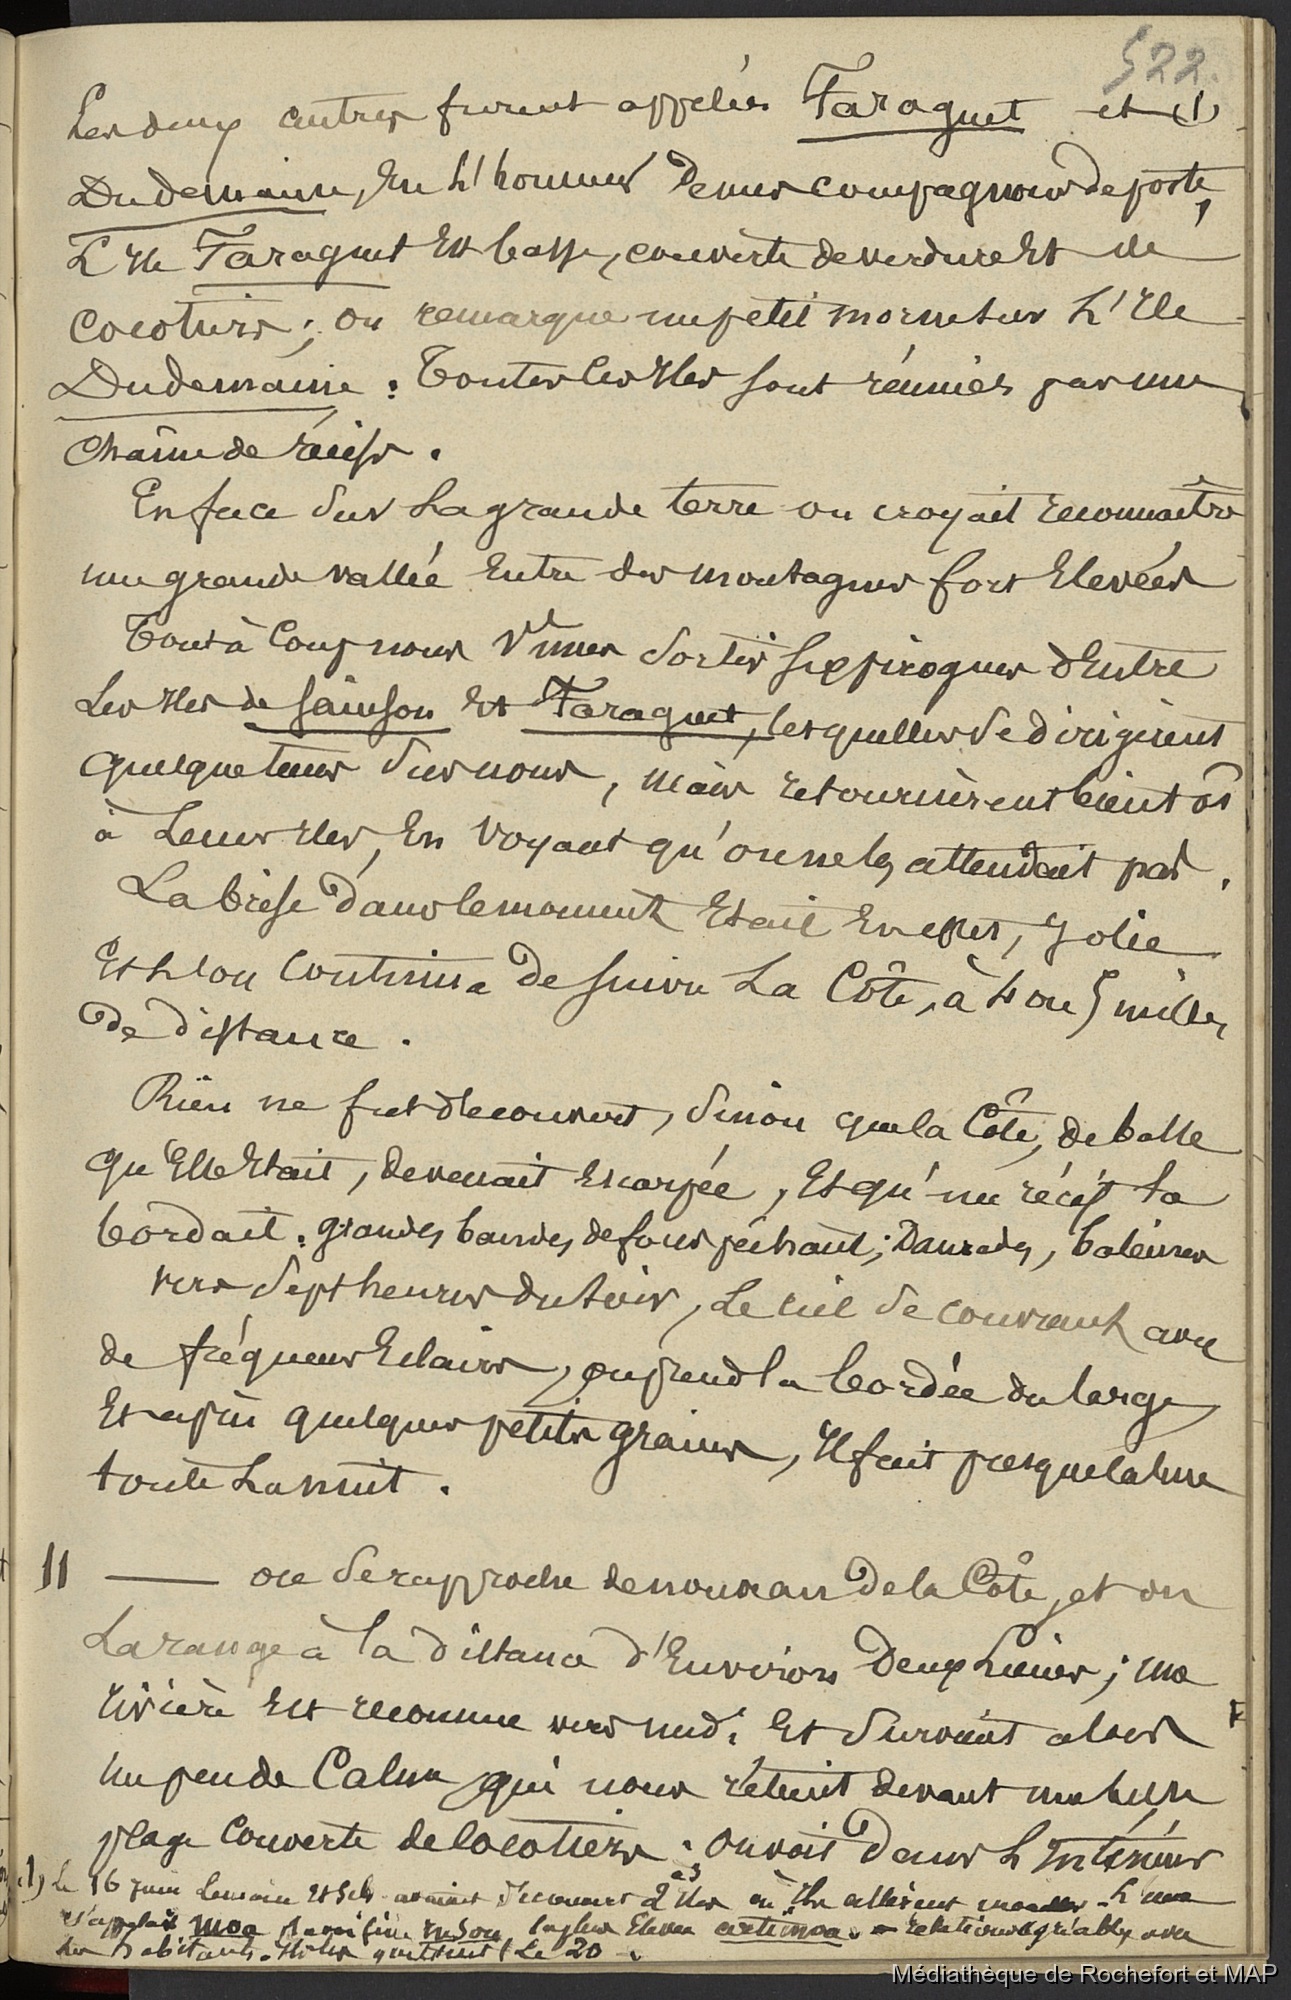 522.
Les deux autres furent appelées Faraguet et (1)
Dudemaine, En L'honneur De mes compagnons de poste,
L'Ile Faraguet Est basse, couverte de verdure Et de
Cocotiers ; on remarque un petit morne sur L'Ile
Dudemaine : Toutes les Iles sont réunies par une
chaîne de récifs .
En face sur La grande terre on croyait reconnaître
une grande vallée Entre des montagnes fort Elevées
Tout à Coup nous vîmes sortir six pirogues d'Entre
Les Iles de Sainson Et Faraguet, lesquelles se dirigèrent
quelque tems sur nous, mais retournèrent bientôt
à Leurs Iles, En voyant qu'on ne les attendait pas .
La brise Dans le moment Etait En effet, Jolie
Et L'on continua De suivre La Côte, à 4 ou 5 milles
De distance .
Rien ne fut découvert, sinon que la Côte, de basse
qu'Elle Etait, devenait Escarpée, Et qu'un récif la
bordait . grandes bandes de fous pêchant ; Daurades, baleines
vers sept heures du soir, Le ciel se couvrant avec
de fréquens Eclairs, on prend la bordée du large,
Et après quelques petits grains, Il fait presque calme
toute La nuit .
11 — on se rapproche de nouveau De la Côte, et on
La range à la distance d'Environ Deux Lieues ; une
rivière Est reconnue vers midi Et survint alors
un peu de Calme qui nous retint devant une belle
plage Couverte de Cocotiers . on voit Dans L'Intérieur
(1) Le 16 juin Lemaire Et Sch. avaient découvert 2 Iles où Ils allèrent L'une
s'appelait moa Elevée arimoa . relations agréables avec
les habitants . Ils les quittèrent Le 20 .
Médiathèque de Rochefort et MAP